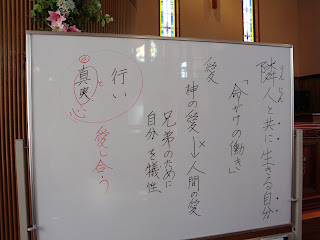 りんじん
隣人と共に生きる自分
「命がけの働き」
愛
神の愛×→人間の愛
兄弟のために
自分を犠牲
行い
と
真実
心
愛し合う